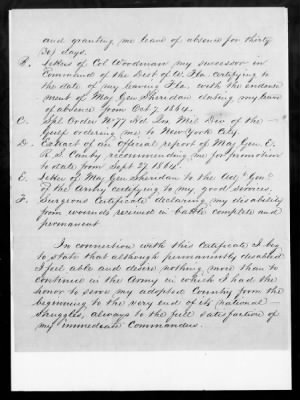 and granting me leave of absence for thirty
30) days.
B. Letters of Col Woodman my successor in
Command of the Dist of W. Fla. certifying to
the date of my leaving Fla. with the endorse
ment of Maj Gen Sheridan dating my leave
of absence from Oct 7, 1864.
C. Spl. Order No 77 Hd. Qrs. Mil. Div of the
Gulf ordering me to New York City
D. Extract of an Official report of Maj Gen. E.
R. S. Canby recommending me for promotion
to date from Sept 27 1864.
E. Letter of Maj Gen Sheridan to the Adj "Gen"
of the Army certifying to my good services.
F. Surgeons Certificate declaring my disability
from wounds received in battle complete and
permanent
In connection with this Certificate I beg
to state that although permanently disabled
I feel able and desire nothing more than to
continue in the Army in which I had the
honor to serve my adopted Country from the
beginning to the very end of its national
struggles, always to the full satisfaction of
my immediate Commanders.